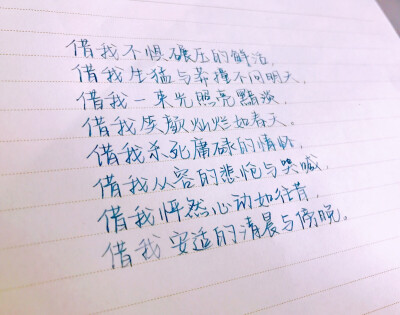 借我不惧碾压的鲜活，
借我生猛与莽撞不问明天，
借我一束光照亮黯淡，
借我笑颜灿烂如春天。
借我杀死庸碌的情怀，
借我从容的悲怆与哭喊，
借我怦然心动如往昔，
借我安适的清晨与傍晚。